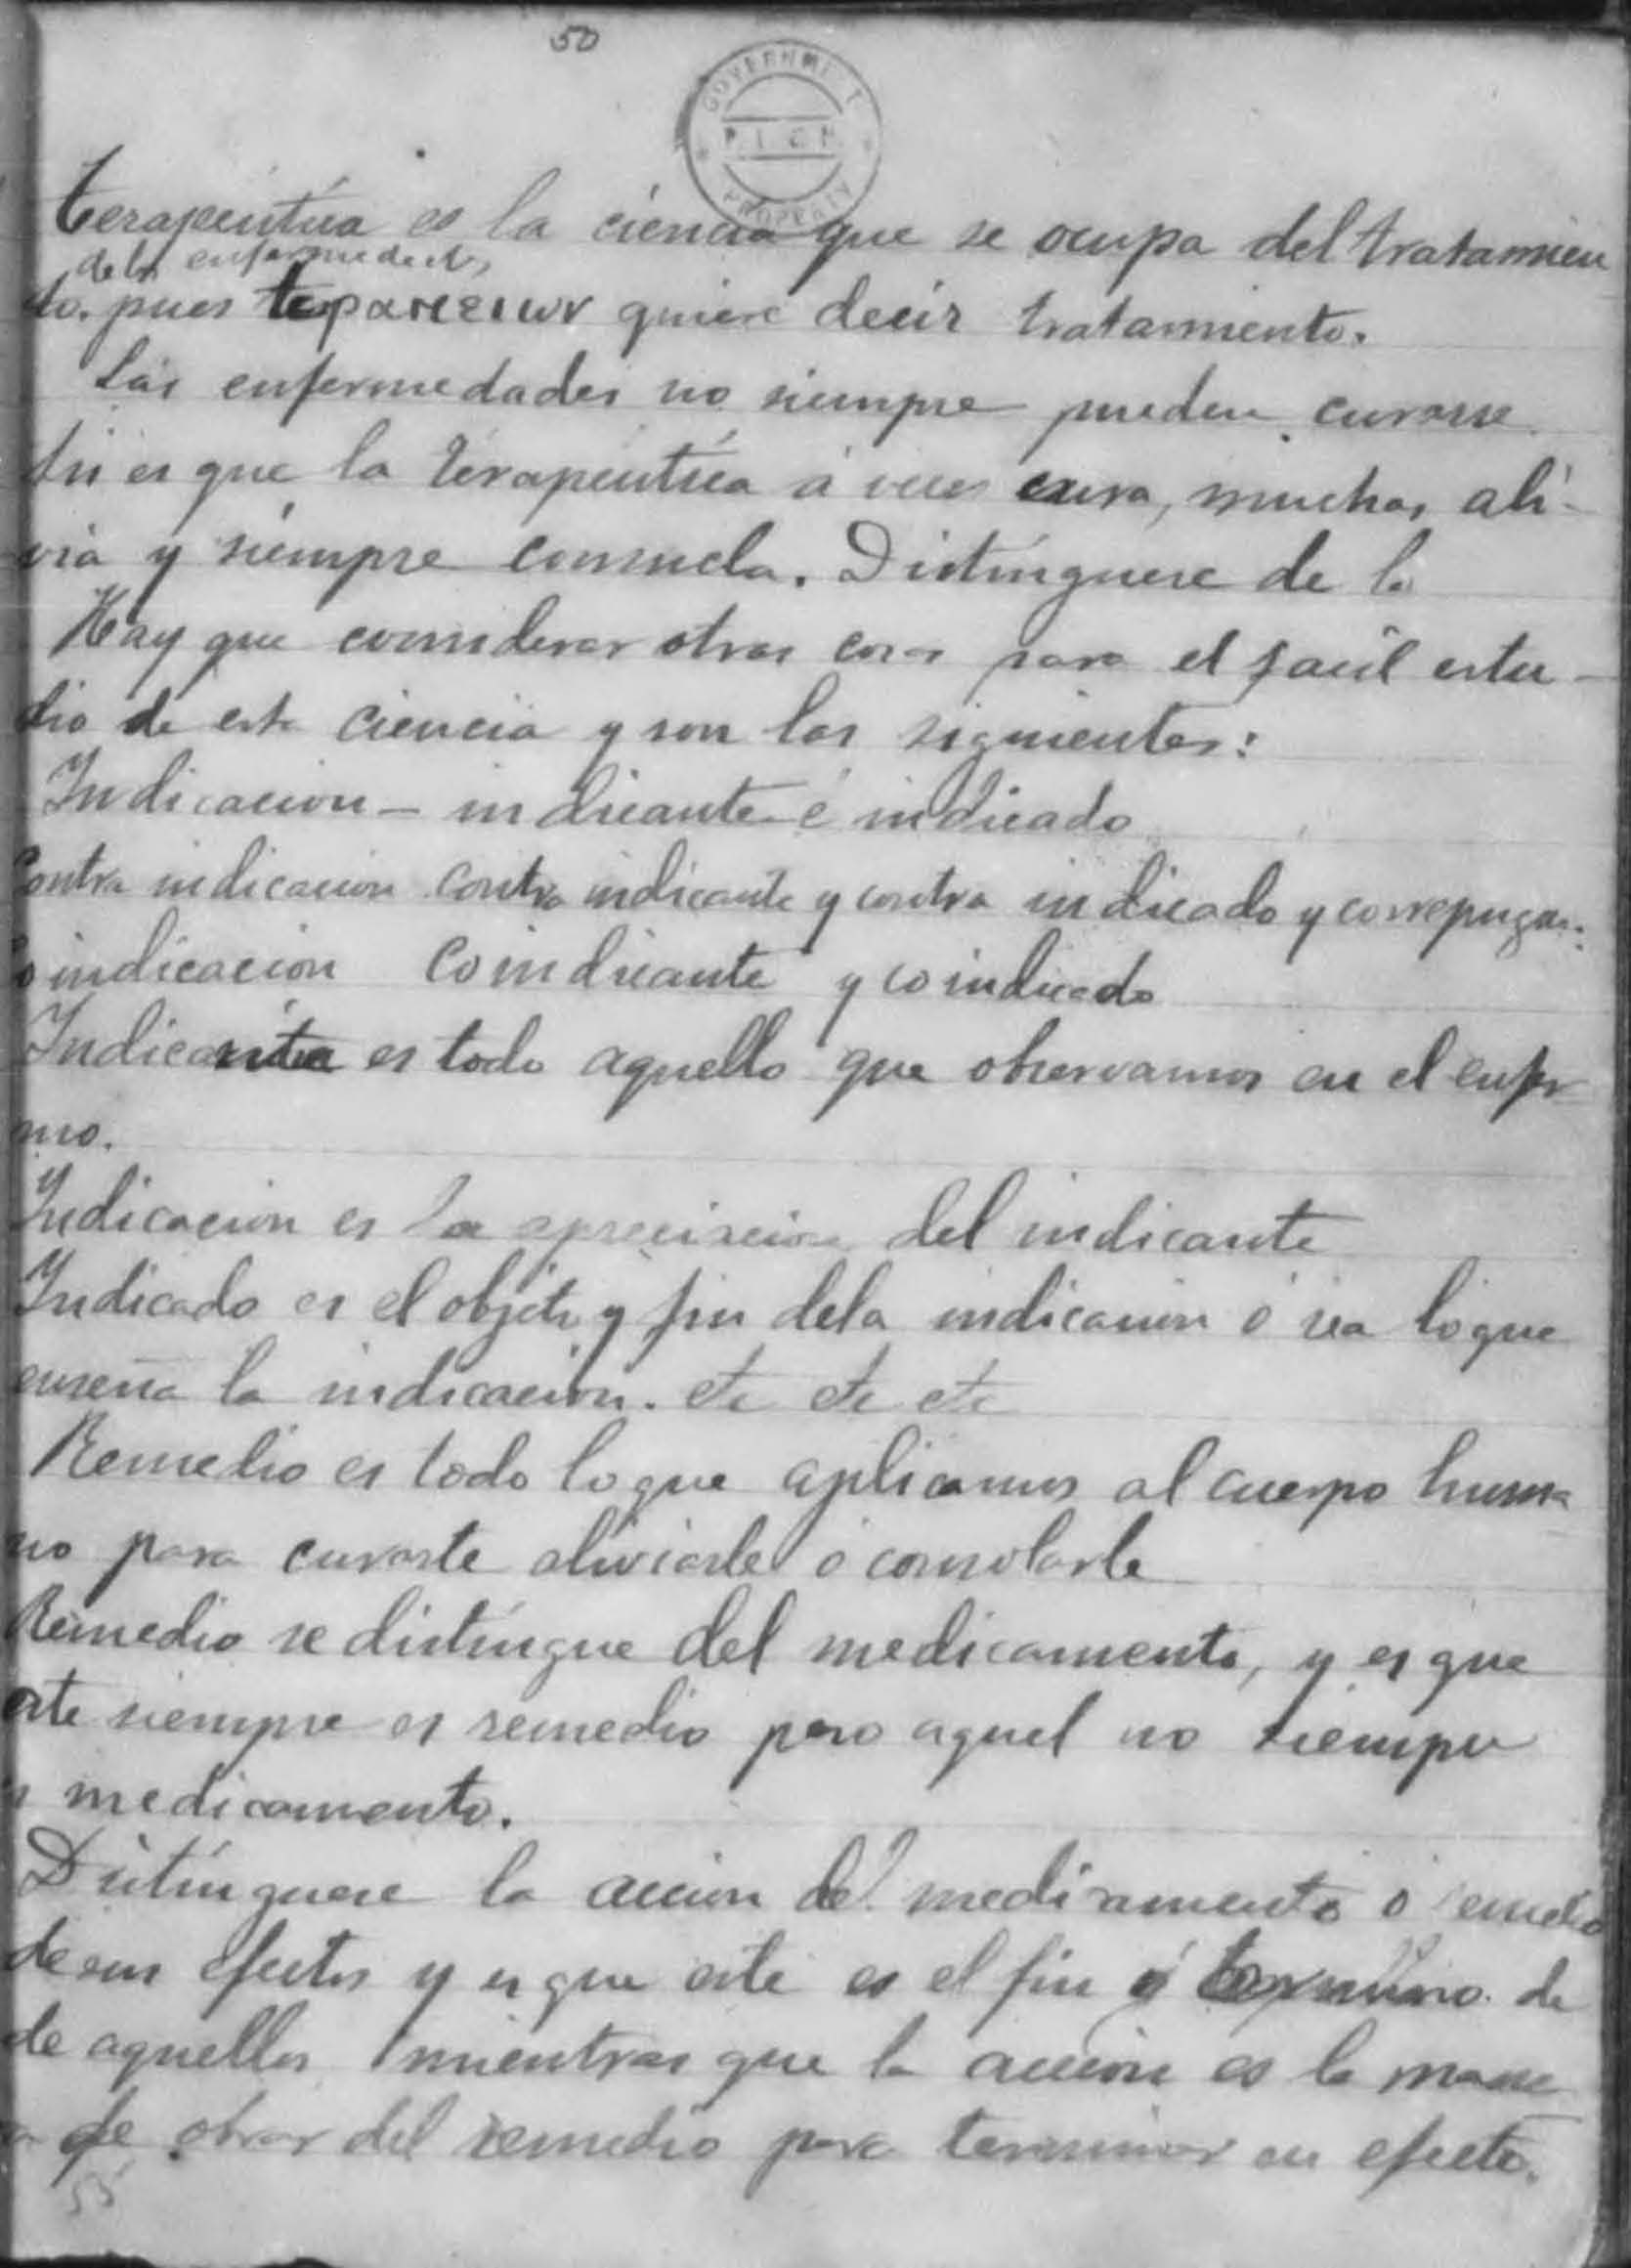 50
GOVERNMENT
P. I. C. H.
PROPERTY
Terapéutica es la ciencia que se ocupa del tratamien
de las enfermedades
to. pues quiere decir tratamiento.
Las enfermedades no siempre pueden curarse
Asi es que la terapéutica á veces cura, muchas ali-
via y siempre consuela. Distínguese de la
Hay que considerar otras cosas para el facil estu-
dio de esta ciencia y son las siguientes:
Indicacion - indicante é indicado
Contra indicacion contra indicante y contra indicado y correpugn.
Coindicacion Coindicante y coindicado
Indicante es todo aquello que observamos en el enfer
mo.
Indicacion es la apreciacion del indicante
Indicado es el objeto y fin dela indicacion ó sea lo que
enseña la indicacion. etc etc etc
Remedio es todo lo que aplicamos al cuerpo huma
no para curarle aliviarle ó consolarle
Remedio se distíngue del medicamento, y es que
este siempre es remedio pero aquel no siempre
es medicamento.
Distínguese la accion del medicamento ó remedio
de sus efectos y es que este es el fin ó termino de
de aquellos mientras que la accion es la mane
ra de obrar del remedio para terminar en efecto.
55